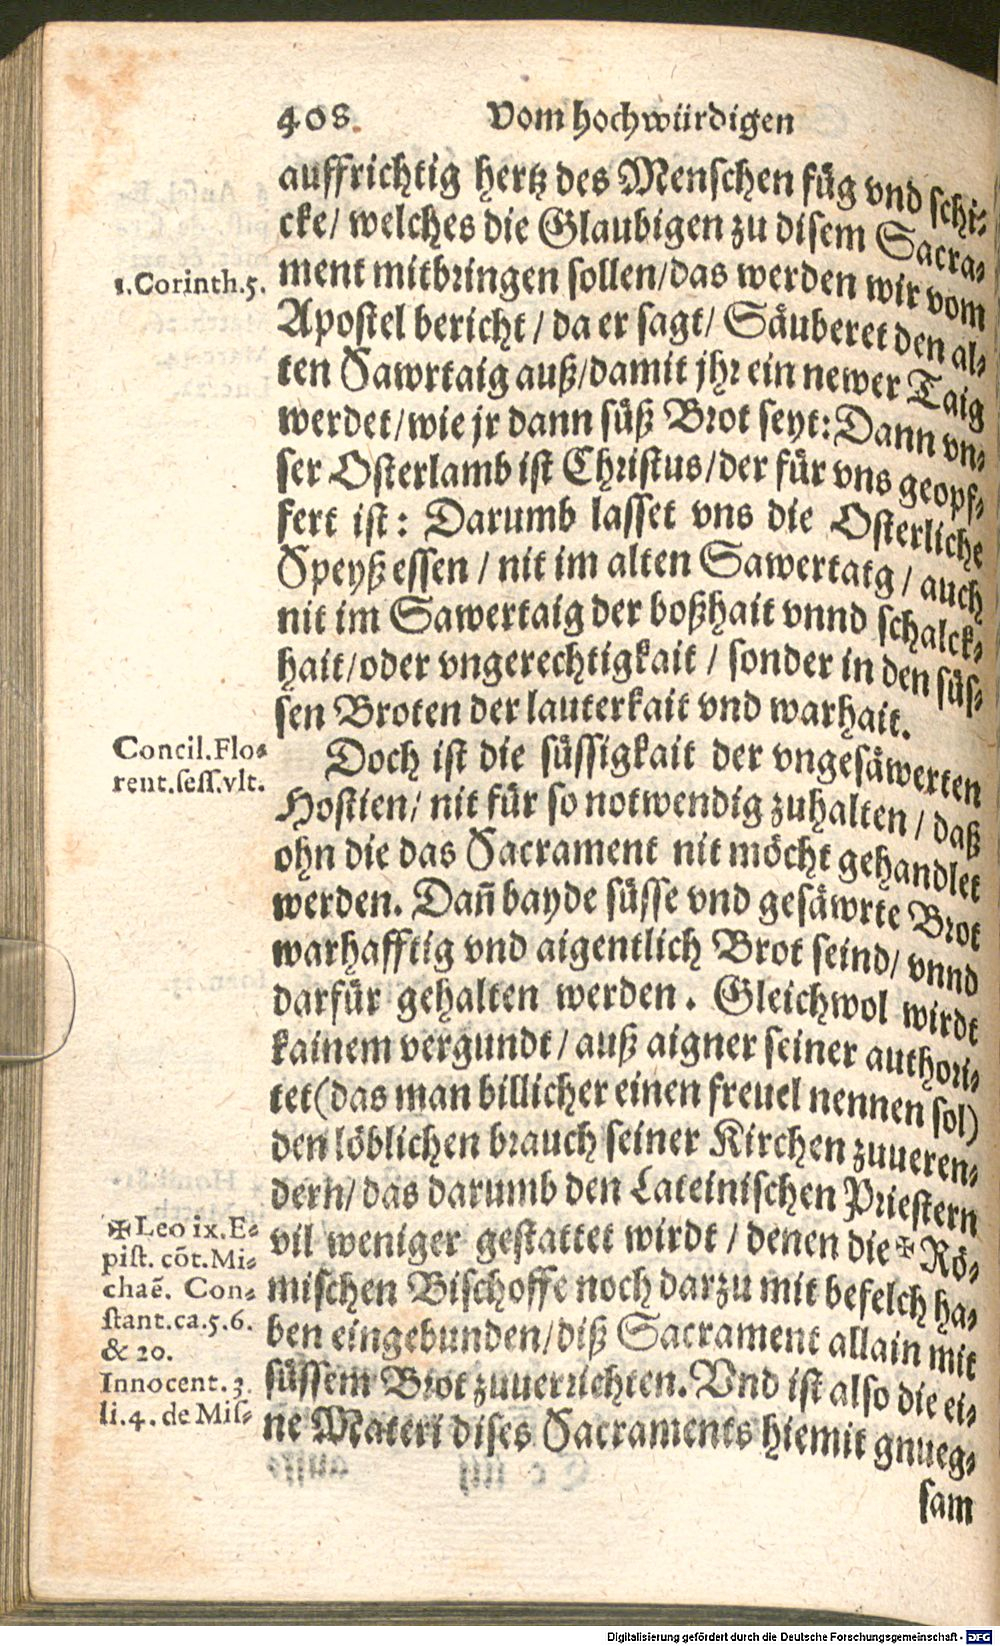 408 Vom hochwürdigen
auffrichtig hertz des Menschen füg vnd schi-
cke/ welches die Glaubigen zu disem Sacra-
1.Corinth.5.
ment mitbringen sollen/das werden wir vom
Apostel bericht / da er sagt/ Säuberet den al-
ten Sawrtaig auß/damit jhr ein newer Taig
werdet/wie jr dann süß Brot seyt: Dann vn-
ser Osterlamb ist Christus/der für vns geopf-
fert ist: Darumb lasset vns die Osterliche
Speyß essen / nit im alten Sawertatg / auch
nit im Sawertaig der boßhait vnnd schalck-
hait/oder vngerechtigkait / sonder in den süs-
sen Broten der lauterkait vnd warhait.
Concil.Flo-
rent.sess.vlt.
Doch ist die süssigkait der vngesäwerten
Hostien/ nit für so notwendig zuhalten / daß
ohn die das Sacrament nit möcht gehandlet
werden. Dañ bayde süsse vnd gesäwrte Brot
warhafftig vnd aigentlich Brot seind/ vnnd
darfür gehalten werden. Gleichwol wirdt
kainem vergundt / auß aigner seiner authori-
tet(das man billicher einen freuel nennen sol)
den löblichen brauch seiner Kirchen zuueren-
dern/ das darumb den Lateinischen Priestern
✠Leo ix.E-
pist. cõt.Mi-
chaẽ. Con-
stant.ca.5.6.
& 20.
Innocent.3.
li.4.de Mis-
vil weniger gestattet wirdt / denen die ✠ Rö-
mischen Bischoffe noch darzu mit befelch ha-
ben eingebunden/diß Sacrament allain mit
süssem Brot zuuerrichten. Vnd ist also die ei-
ne Materi dises Sacraments hiemit gnueg-
sam
Digitalisierung gefördert durch die Deutsche Forschungsgemeinschaft - DFG